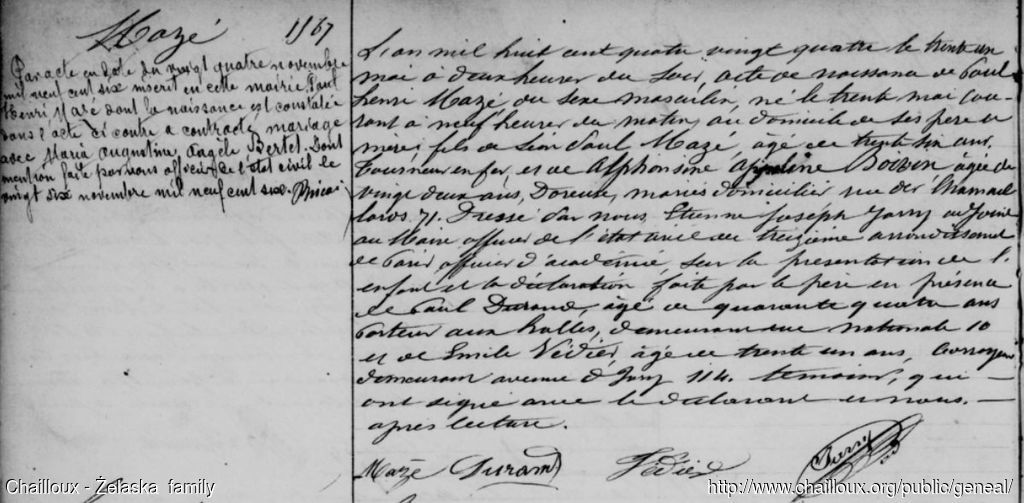 Mazé 1567
Par acte en date du vingt quatre novembre
mil neuf cent six inscrit en cette mairie, Paul
Henri Mazé dont la naissance est constatée
dans l'acte ci contre a contracté mariage
avec Maria Augustine Angèle Bertel. Dont
mention faite par nous officier de l'état civil le
vingt six novembre mil neuf cent six.
L'an mil huit cent quatre vingt quatre le trente un
mai à deux heures du soir, acte de naissance de Paul
henri Mazé, du sexe masculin, né le trente mai cou-
rant à neuf heures du matin, au domicile de ses père et
mère; fils de Léon Paul Mazé, âgé de trente six ans,
Tourneur en fer, et de Alphonsine Apoline Boivin âgée de
vingt deux ans, Doreuse, mariés domiciliés rue des
71. Dressé par nous, Etienne Joseph Jarry adjoint
au Maire officier de l'état civil du treizième arrondissement
de Paris officier d'académie, sur la présentation de l'
enfant et la déclaration faite par le père en présence
de Paul Durand, âgé de quarante quatre ans
Porteur aux halles, demeurant rue nationale 10
et de Emile Védier, âgé de trente un ans, Corroyeur
demeurant avenue d'Ivry 114. témoins, qui —
ont signé avec le déclarant et nous. —
après lecture.
Mazé Durand Védier Jarry
Chailloux - Želaska family
http://www.chailloux.org/public/geneal/